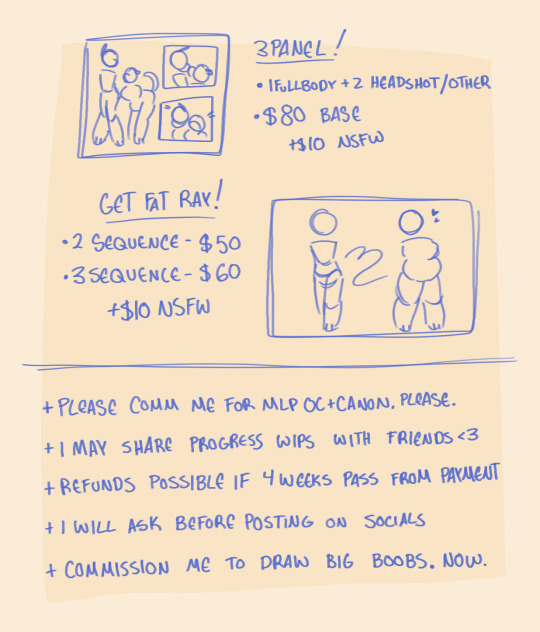 3 PANEL!
• 1 FULLBODY + 2 HEADSHOT/OTHER
• $80 BASE
+$10 NSFW
GET FAT RAY!
• 2 SEQUENCE - $50
• 3 SEQUENCE - $60
+$10 NSFW
+ PLEASE COMM ME FOR MLP OC+CANON. PLEASE.
+ I MAY SHARE PROGRESS WIPS WITH FRIENDS <3
+ REFUNDS POSSIBLE IF 4 WEEKS PASS FROM PAYMENT
+ I WILL ASK BEFORE POSTING ON SOCIALS
+ COMMISSION ME TO DRAW BIG BOOBS. NOW.